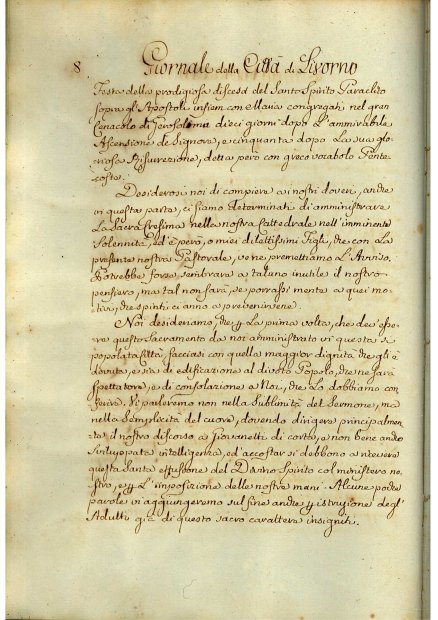 8 Giornale della Città di Livorno
Festa della prodigiosa discesa del Santo Spirito Paraclito
sopra gl'Apostoli insiem con Maria congregati nel gran
Cenacolo di Gerosoloma dieci giorni dopo l'ammirabile
Ascensione de Signore, e cinquanta dopo la sua glo=
riosa Risurrezione, detta però con greco vocabolo Pente
coste.
Desiderosi noi di compiere a i nostri doveri, anche
in questa parte, ci siamo determinati di amministrare
la Sacra Cresima nella nostra Cattedrale nell'imminente
Solennità, ed è però, o miei dilettissimi Figli, che con la
presente nostra Pastorale, ve ne premettiamo l'Avviso.
Potrebbe forse sembrare a taluno inutile il nostro
pensiero, ma tal non sarà, se porrassi mente a quei mo
tivi, che spinti ci anno a prevenirvene.
Noi desideriamo, che p la prima volta, che dev'esse
re questo Sacramento da noi amministrato in questa sì
popolata Città, facciasi con quella maggior dignità che gli è
dovuta, e sia di edificazione al divoto Popolo, che ne sarà
spettatore, e di consolazione a Noi, che lo dobbiamo con
ferire. Vi parleremo non nella sublimità del Sermone, ma
nella semplicità del cuore, dovendo dirigere principalmen
te il nostro discorso a Giovanetti di corta, e non bene anche
sviluppata intelligenza, ed accostar si debbono a ricevere
questa Santa effusione del Divino Spirito col ministero no
stro, e p l'imposizione delle nostre mani. Alcune poche
parole vi aggiungeremo sul fine anche p istruzione degl'
Adulti già di questo sacro carattere insigniti.